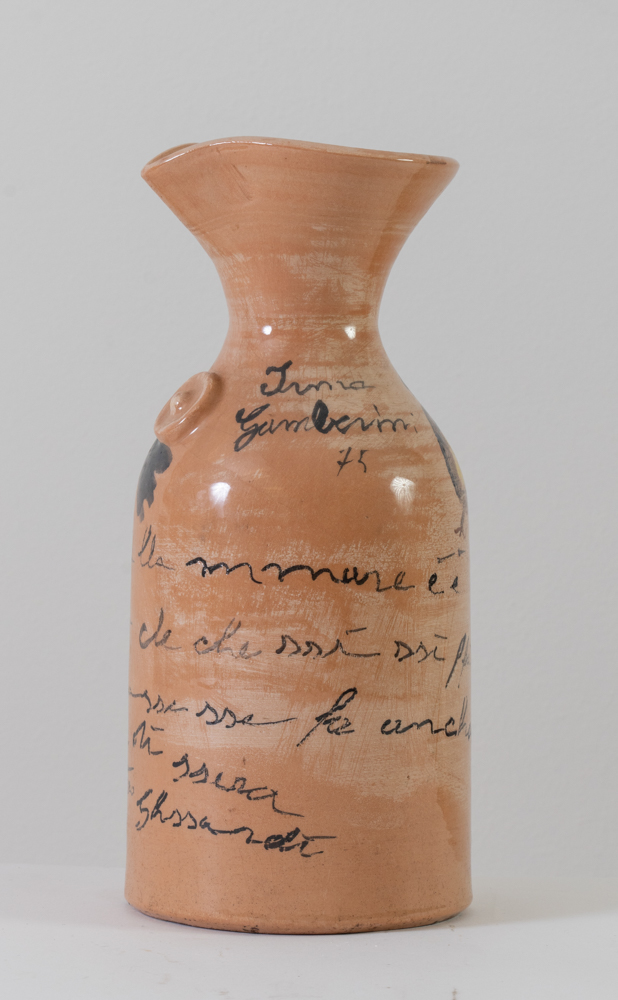 Irma
Gamberini
75
lla mmmare è è
cle che ssi ssi
ssa ssa fa anch
di ssera
Ghssardi